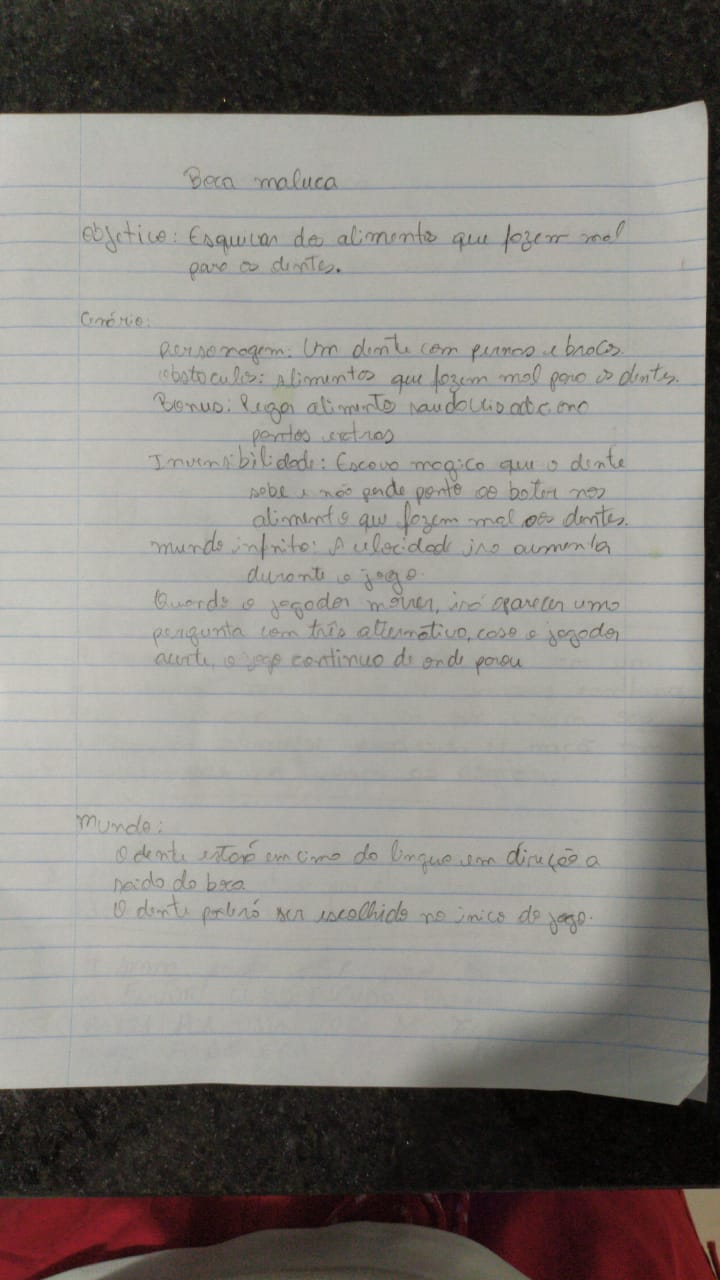 Boca maluca
Objetivo: Esquivar dos alimentos que fazem mal
para os dentes.
Cenário:
Personagem: Um dente com pernas e braços.
obstaculis: alimentos que fazem mal para os dentes.
Bonus: Pegar alimento saudavis
pontos extras
Invensibilidade: Escova magica que o dente
sobe e não perde ponto ao bater nos
alimentos que fazem mal aos dentes.
mundo infinito: A velocidade ira aumenta
durante o jogo.
Quando o jogador morrer, irá aparecer uma
pergunta com três alternativa, caso o jogador
acerte, o jogo continua de onde parou
mundo:
O dente estará em cima da lingua em direção a
saida da boca.
O dente poderá ser escolhido no inico do jogo.